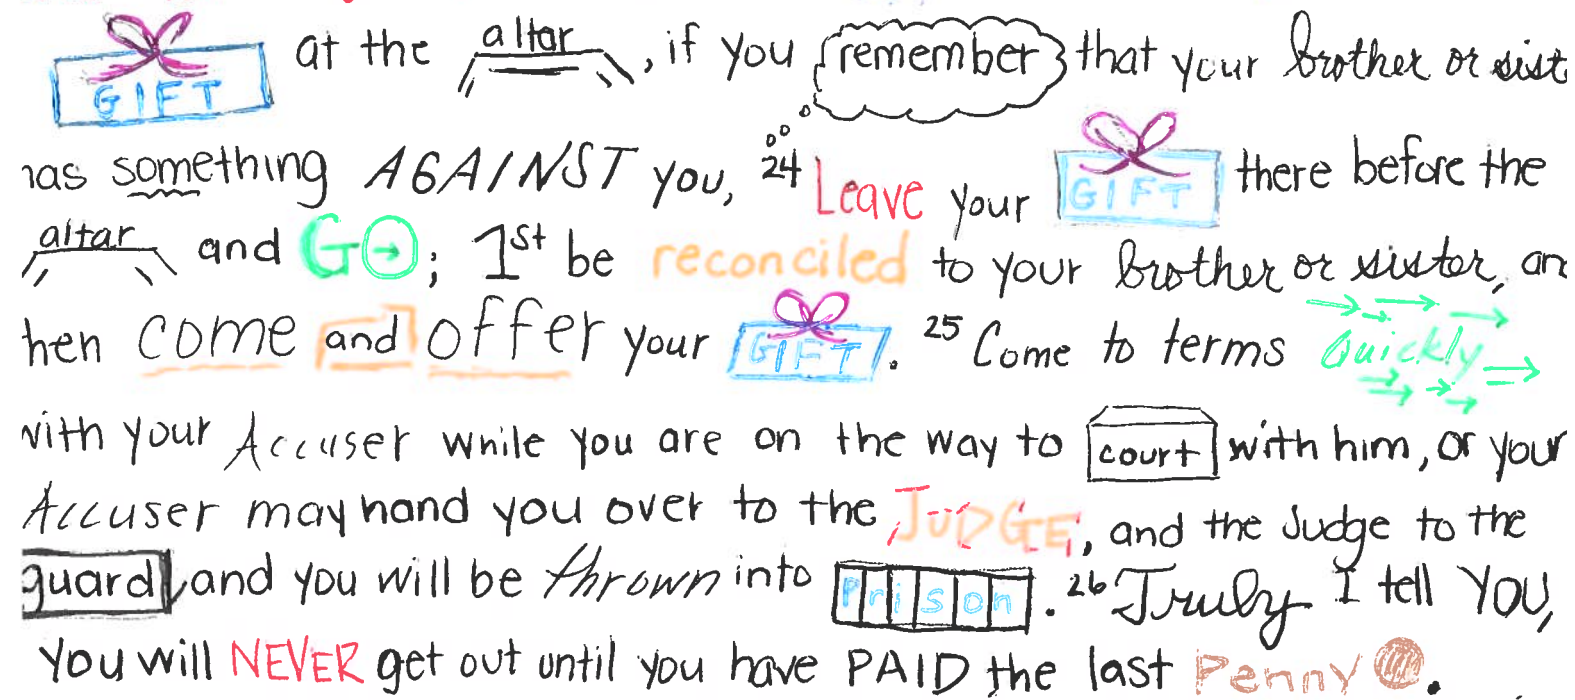 GIFT at the altar, if you remember that your brother or sist
has something AGAINST you, 24 Leave your GIFT there before the
altar and GO; 1st be reconciled to your brother or sister, an
hen come and offer your GIFT. 25 Come to terms Quickly
with your Accuser while you are on the way to court with him, or your
Accuser may hand you over to the JUDGE, and the Judge to the
guard, and you will be thrown into Prison. 26 Truly I tell YOU,
You will NEVER get out until you have PAID the last Penny.